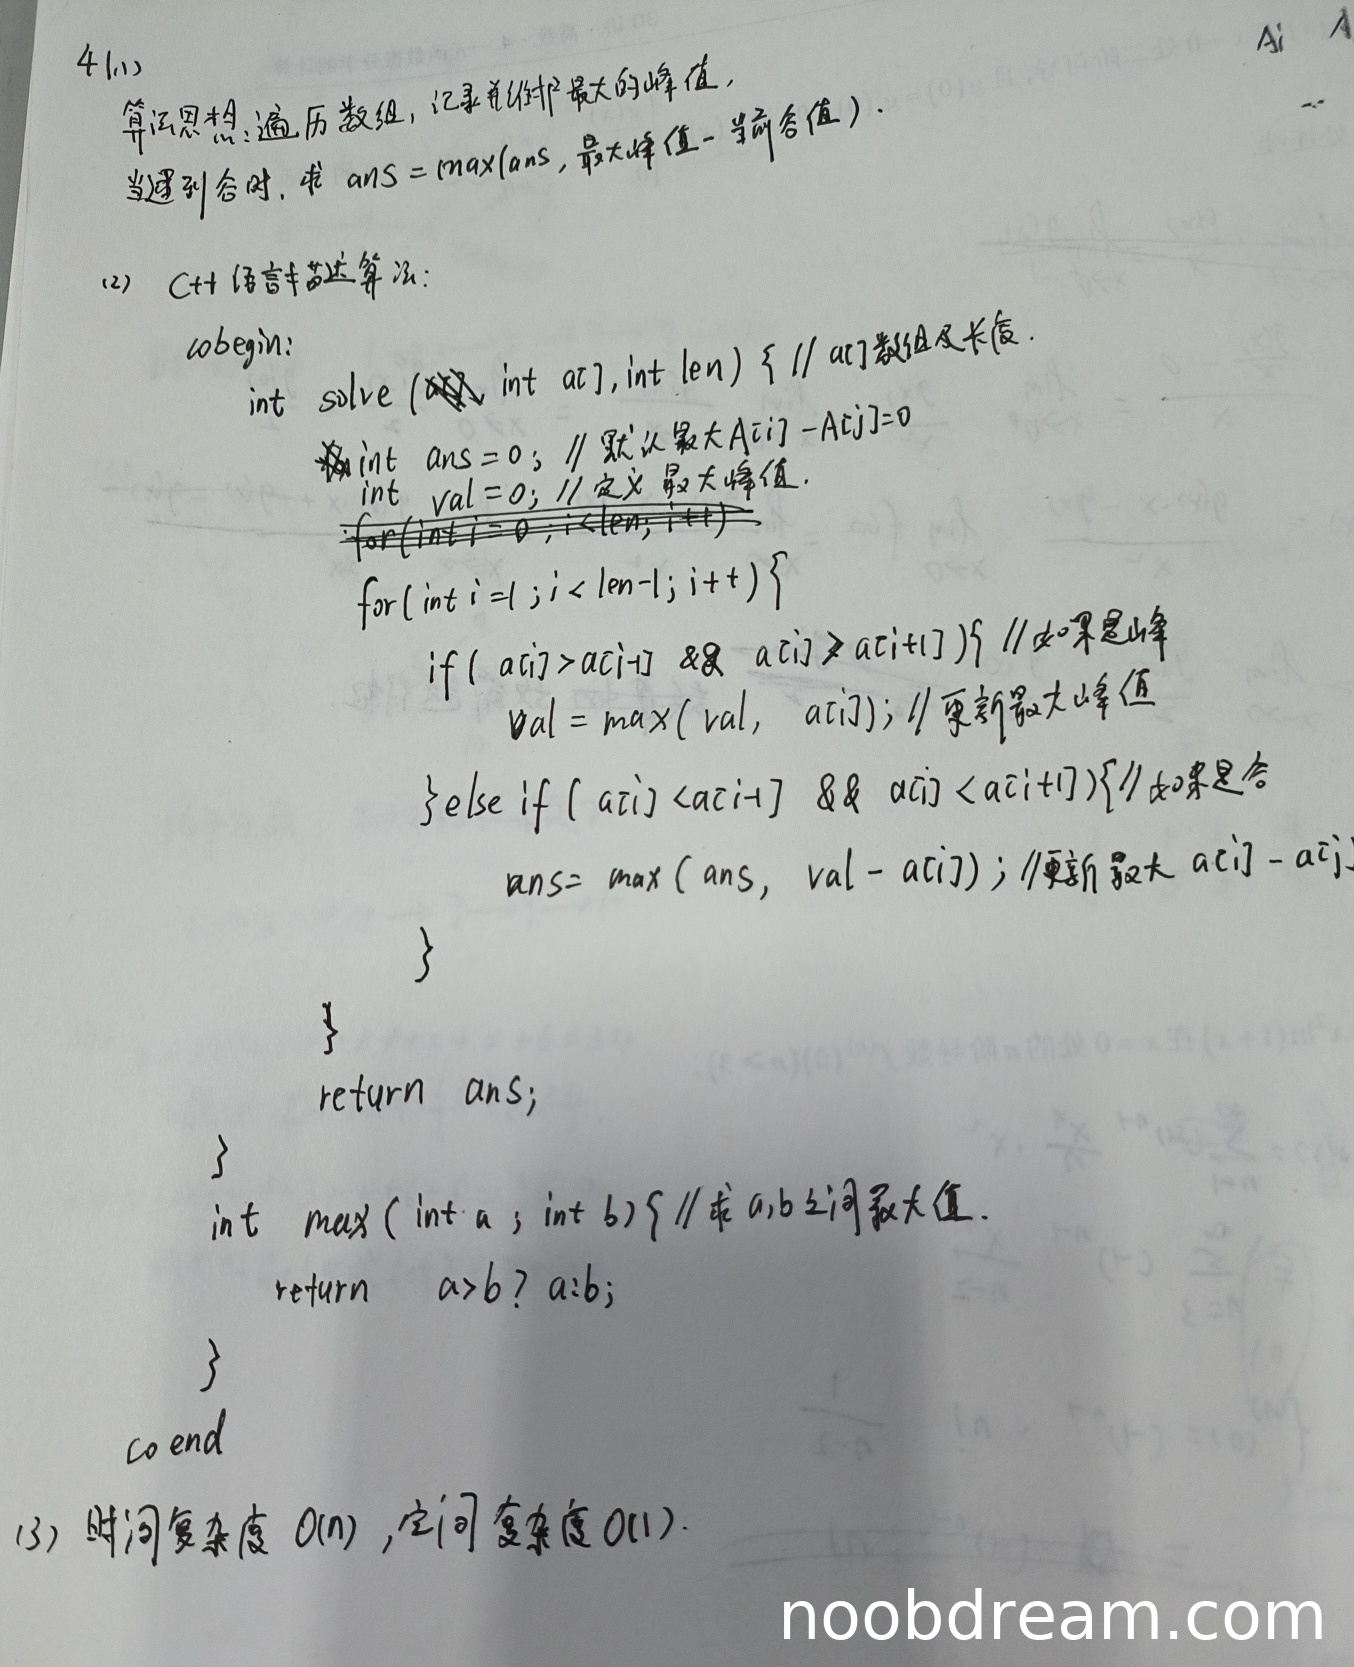 Ai A
4(1)
算法思想:遍历数组,记录并维护最大的峰值,
当遇到谷时,求 ans = max(ans, 最大峰值 - 当前谷值).
(2) C++ 语言描述算法:
cobegin:
int solve ( int a[], int len) { // a[]数组及长度.
int ans = 0; // 默认最大A[i] - A[j]=0
int val = 0; // 定义最大峰值.
for(int i = 0 ; i < len; i++)
for(int i = 1 ; i < len-1; i++){
if( a[i] > a[i-1] && a[i] > a[i+1] ){ // 如果是峰
val = max( val, a[i]); // 更新最大峰值
}else if ( a[i] < a[i-1] && a[i] < a[i+1]){ // 如果是谷
ans= max ( ans, val - a[i]) ; // 更新最大 a[i] - a[j]
}
}
return ans;
}
int max ( int a ; int b) { // 求 a,b之间最大值.
return a>b? a:b;
}
coend
(3) 时间复杂度 O(n) , 空间复杂度 O(1).
noobdream.com